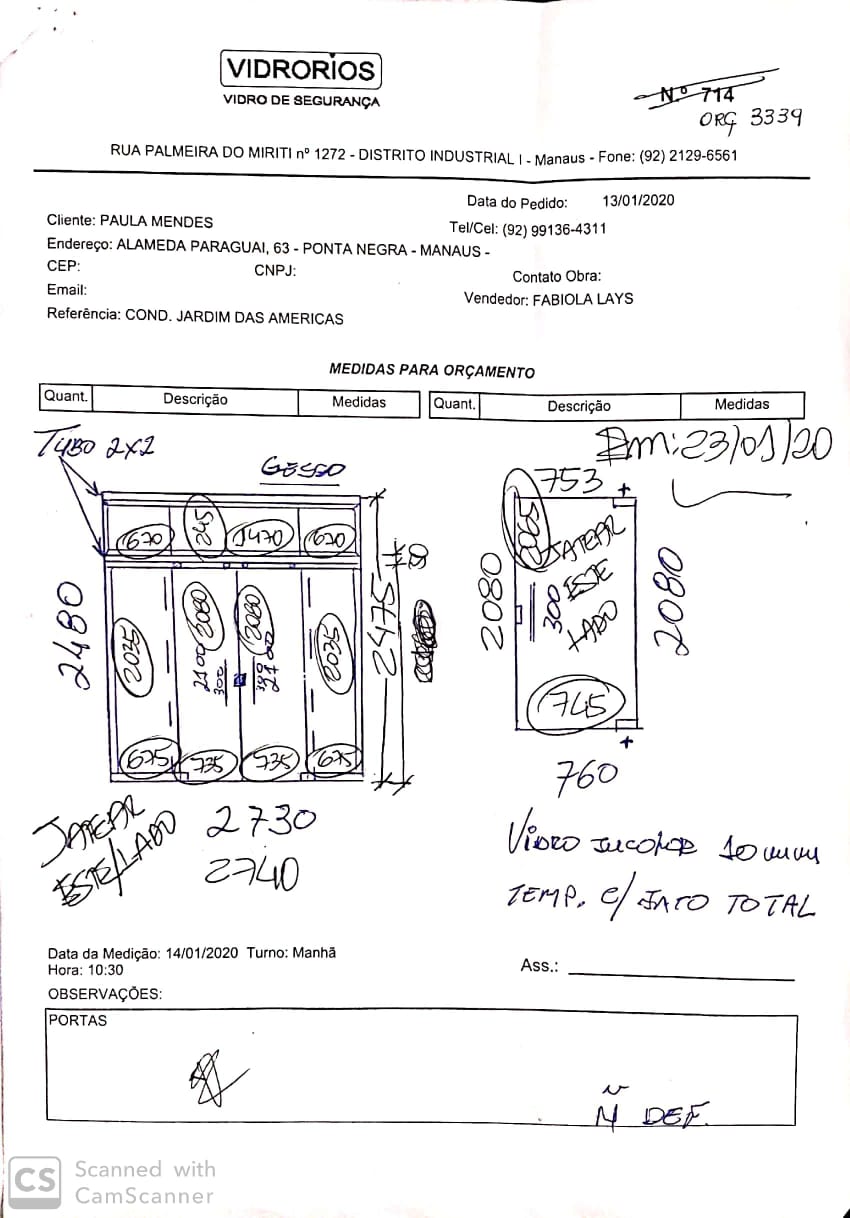 VIDRORIOS
VIDRO DE SEGURANÇA
N.º 714
ORÇ 3339
RUA PALMEIRA DO MIRITI nº 1272 - DISTRITO INDUSTRIAL I - Manaus - Fone: (92) 2129-6561
Data do Pedido: 13/01/2020
Cliente: PAULA MENDES
Tel/Cel: (92) 99136-4311
Endereço: ALAMEDA PARAGUAI, 63 - PONTA NEGRA - MANAUS -
CEP: CNPJ:
Contato Obra:
Email:
Vendedor: FABIOLA LAYS
Referência: COND. JARDIM DAS AMERICAS
MEDIDAS PARA ORÇAMENTO
Quant. Descrição Medidas Quant. Descrição Medidas
TUBO 2X2
GESSO
Em: 23/01/20
670 245 1470 670
2480
2035 2080 2080 2035
2100 300
2100
2475
675 735 735 675
JATEAR ESTE LADO
2730
2740
753
2065
JATEAR
ESTE
LADO
2080
300
2080
745
760
VIDRO INCOLOR 10mm
TEMP. C/ JATO TOTAL
Data da Medição: 14/01/2020 Turno: Manhã
Hora: 10:30
Ass.:
OBSERVAÇÕES:
PORTAS
Ñ DEF.
CS Scanned with
CamScanner